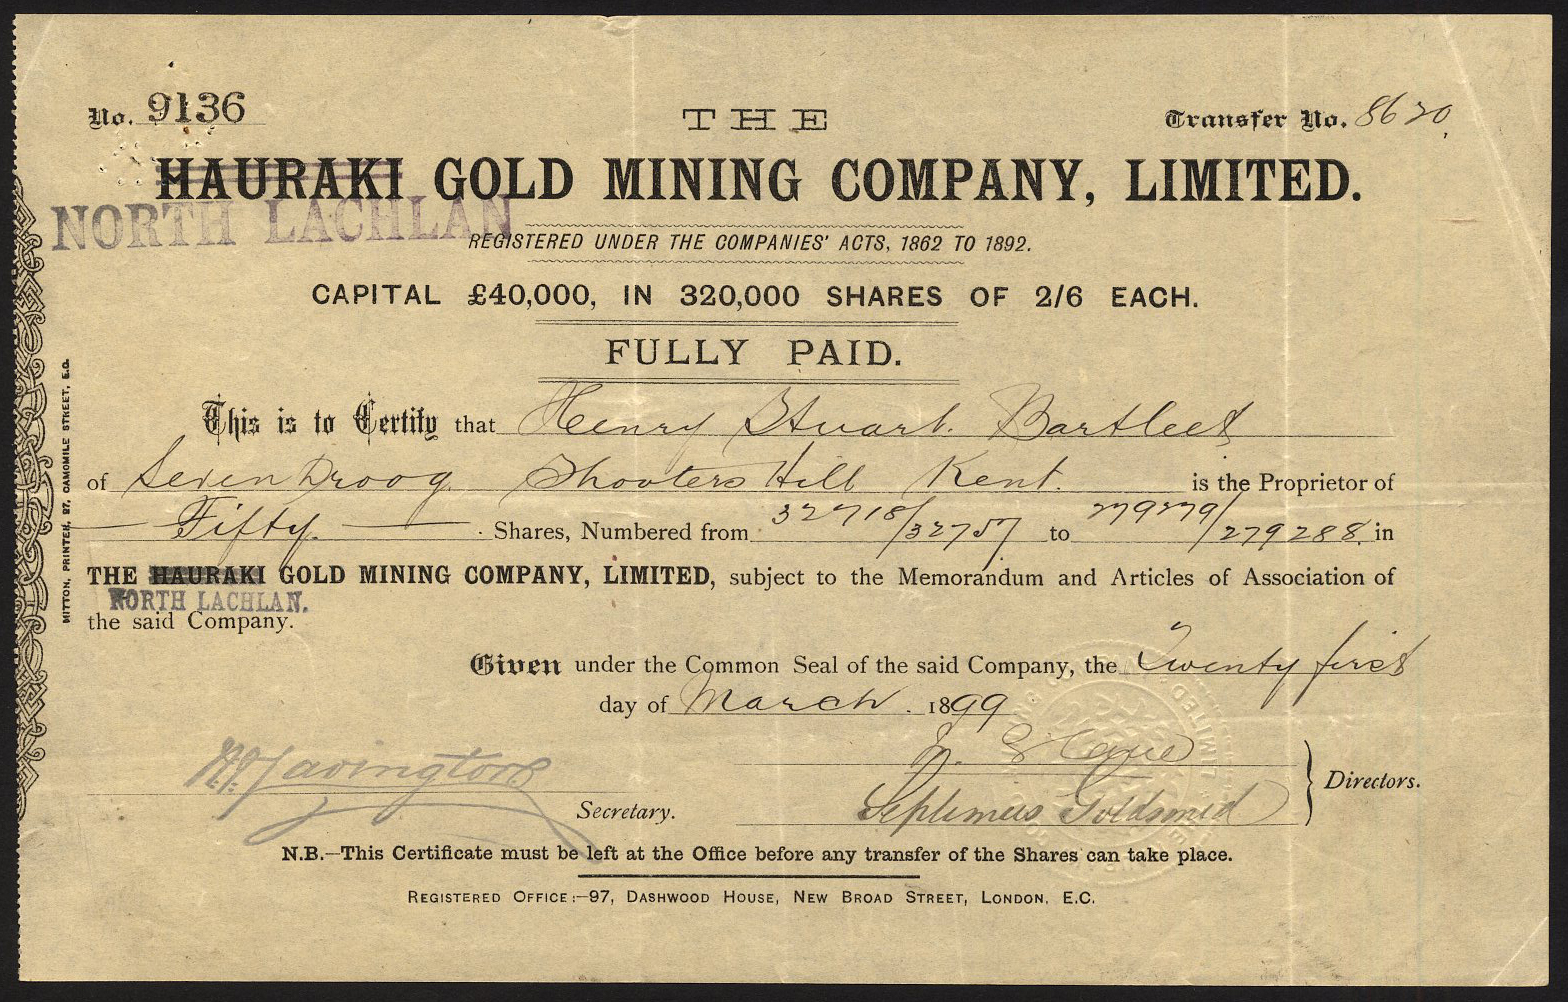 No. 9136
THE
Transfer No. 8620
HAURAKI GOLD MINING COMPANY, LIMITED.
NORTH LACHLAN
REGISTERED UNDER THE COMPANIES' ACTS, 1862 TO 1892.
CAPITAL £40,000, IN 320,000 SHARES OF 2/6 EACH.
FULLY PAID.
This is to Certify that Henry Stuart Bartleet
of Seven Droog Shooters Hill Kent. is the Proprietor of
Fifty. Shares, Numbered from 32718/32757 to 279279/279288 in
THE HAURAKI GOLD MINING COMPANY, LIMITED, subject to the Memorandum and Articles of Association of
NORTH LACHLAN.
the said Company.
Given under the Common Seal of the said Company, the Twenty first
day of March. 1899
Septimus Goldsmid
Directors.
Secretary.
N.B.—This Certificate must be left at the Office before any transfer of the Shares can take place.
REGISTERED OFFICE:—97, DASHWOOD HOUSE, NEW BROAD STREET, LONDON, E.C.
MITTON, PRINTER, 97, CAMOMILE STREET, E.C.